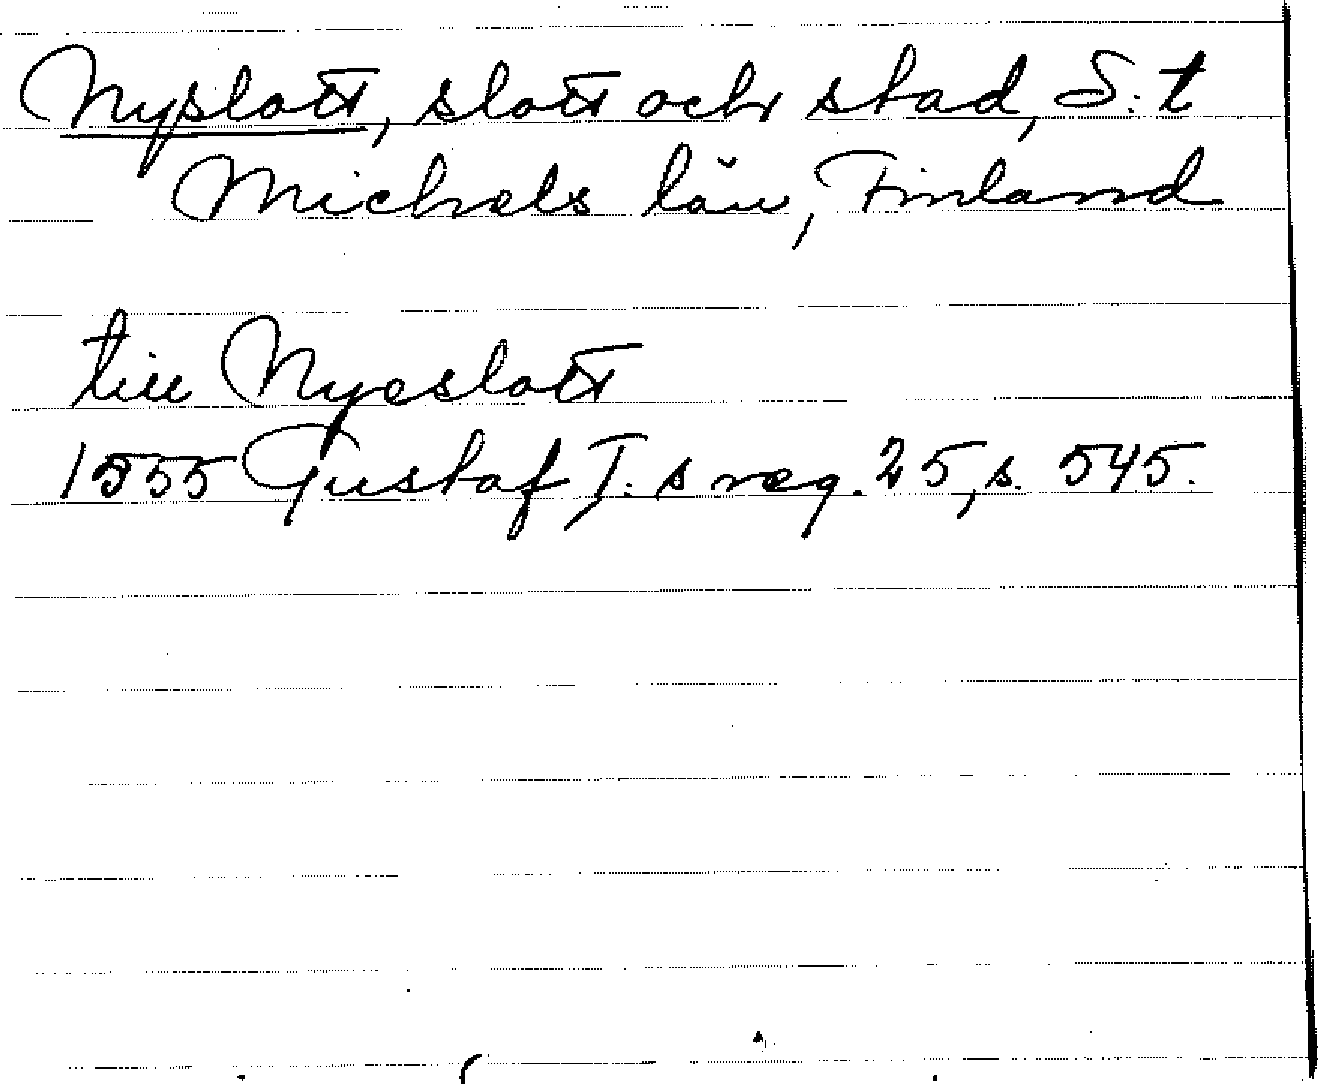 Nyslott, slott och stad, S:t
Michels län, Finland
till Nyeslott
1555 Gustaf I:s reg. 25, s. 545.